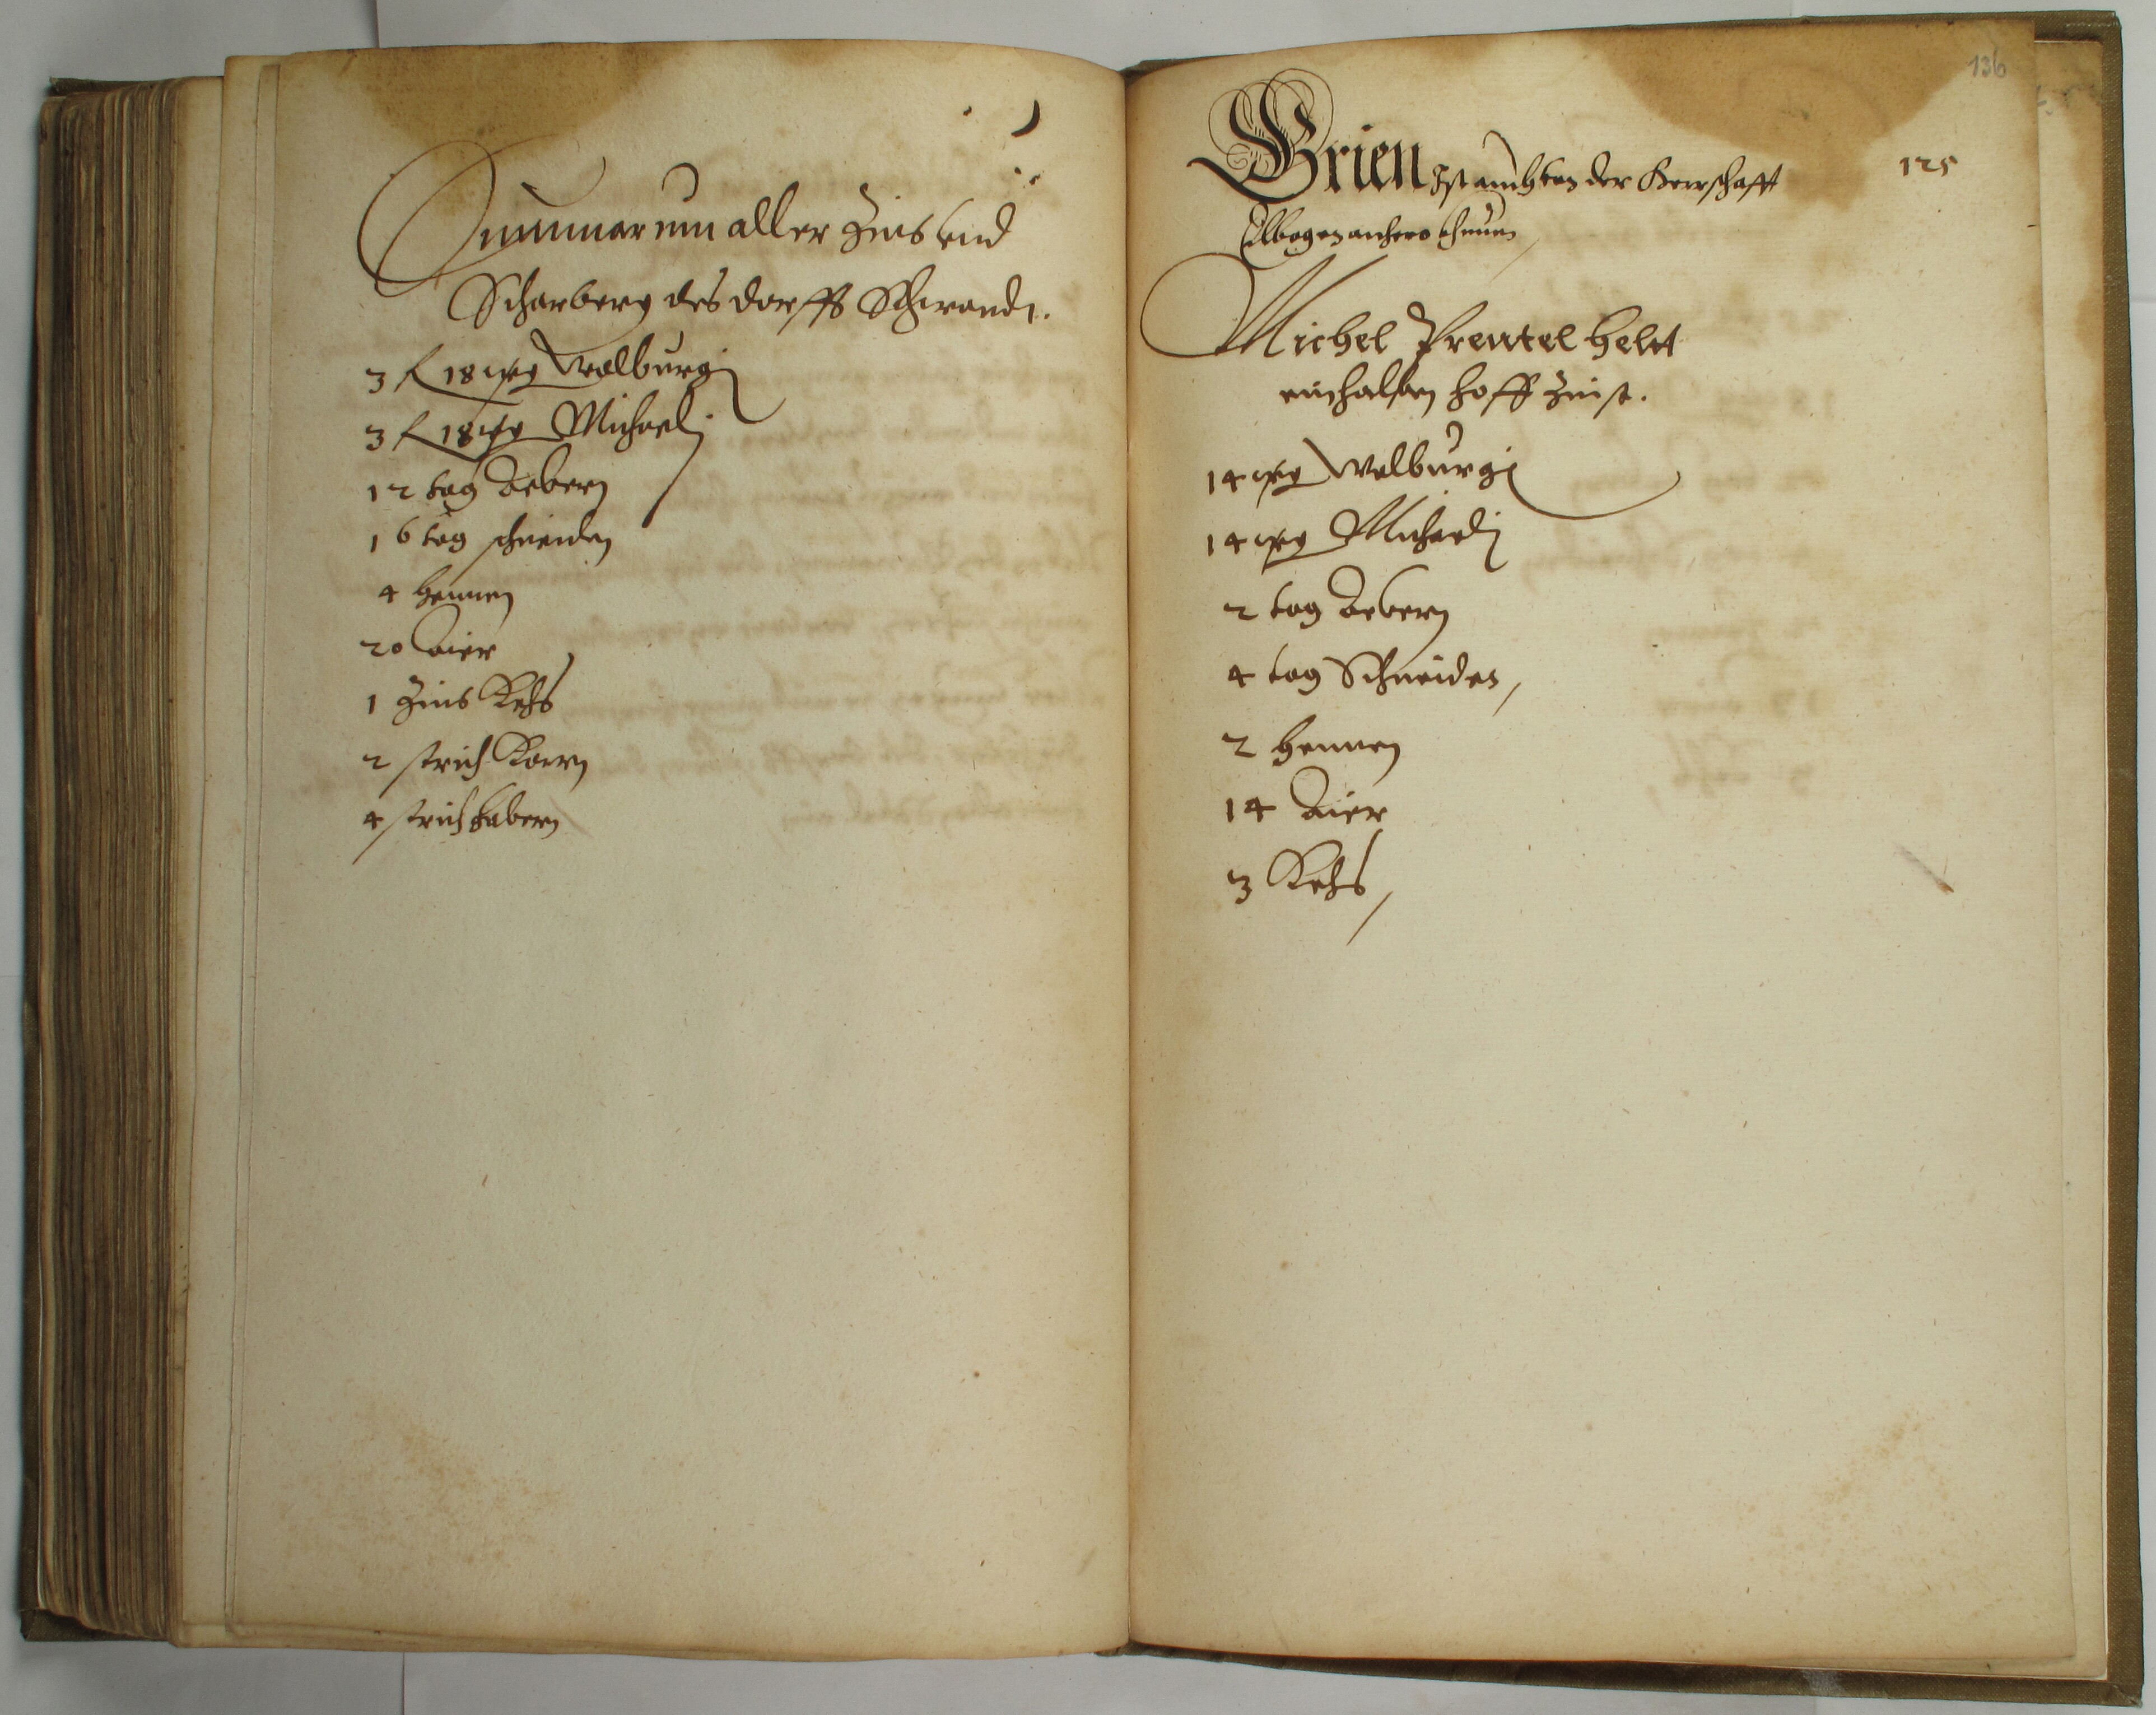 Summarum aller Zins vnd
Scharberg des dorffs Schwandt.
3 ß 18 gr Walburgi
3 ß 18 gr Michaeli
12 tag Aebern
16 tag schneiden
4 hennen
20 Aier
1 Zins Kehs
2 strich Korn
4 strich habern
136
125
Grien Ist auch von der Herrschafft
Elbogen anhero khumen
Michel Prentel helt
ein halben hoff Zinst.
14 gr Walburgi
14 gr Michaeli
2 tag Aebern
4 tag Schneiden
2 hennen
14 Aier
3 Kehs